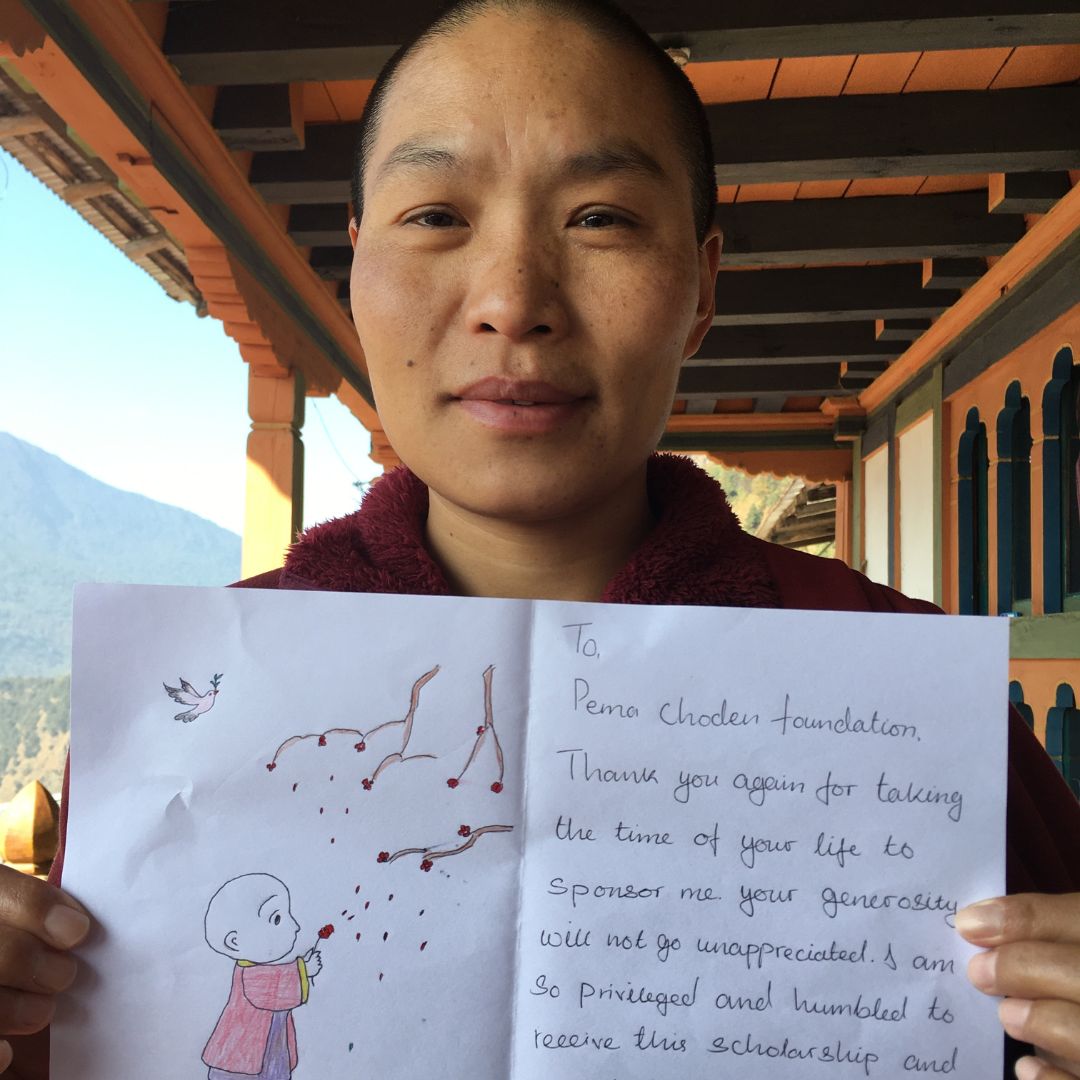 To,
Pema Choden foundation.
Thank you again for taking
the time of your life to
sponsor me. your generosity
will not go unappreciated. I am
So privileged and humbled to
receive this scholarship and